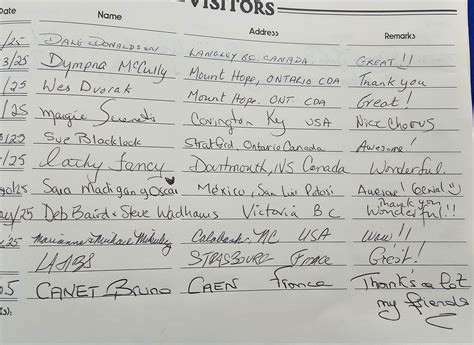 VISITORS
Date Name Address Remarks
/25 DALE DONALDSON LANGLEY BC. CANADA. GREAT!!
3/25 Dympna McCully Mount Hope, ONTARIO CDA Thank you
/25 Wes Dvorak Mount Hope. ONT. CDA Great!
/25 Margie Covington Key USA Nice Chorus
/22 Sue Blacklock Stratford, Ontario Canada Awesome!
/25 Cathy Fancy Dartmouth, NS Canada Wonderful.
/25 Sara Madigan y Oscar México, San Luis Potosí Awesome! Genial
/25 Deb Baird & Steve Wadhams Victoria BC Thank you Wonderful!!
.25 Marianne & Michael Calabash, NC USA Wow!!
STRASBOURG France Great!
5 CANET Bruno CAEN France Thank's a lot
my friends